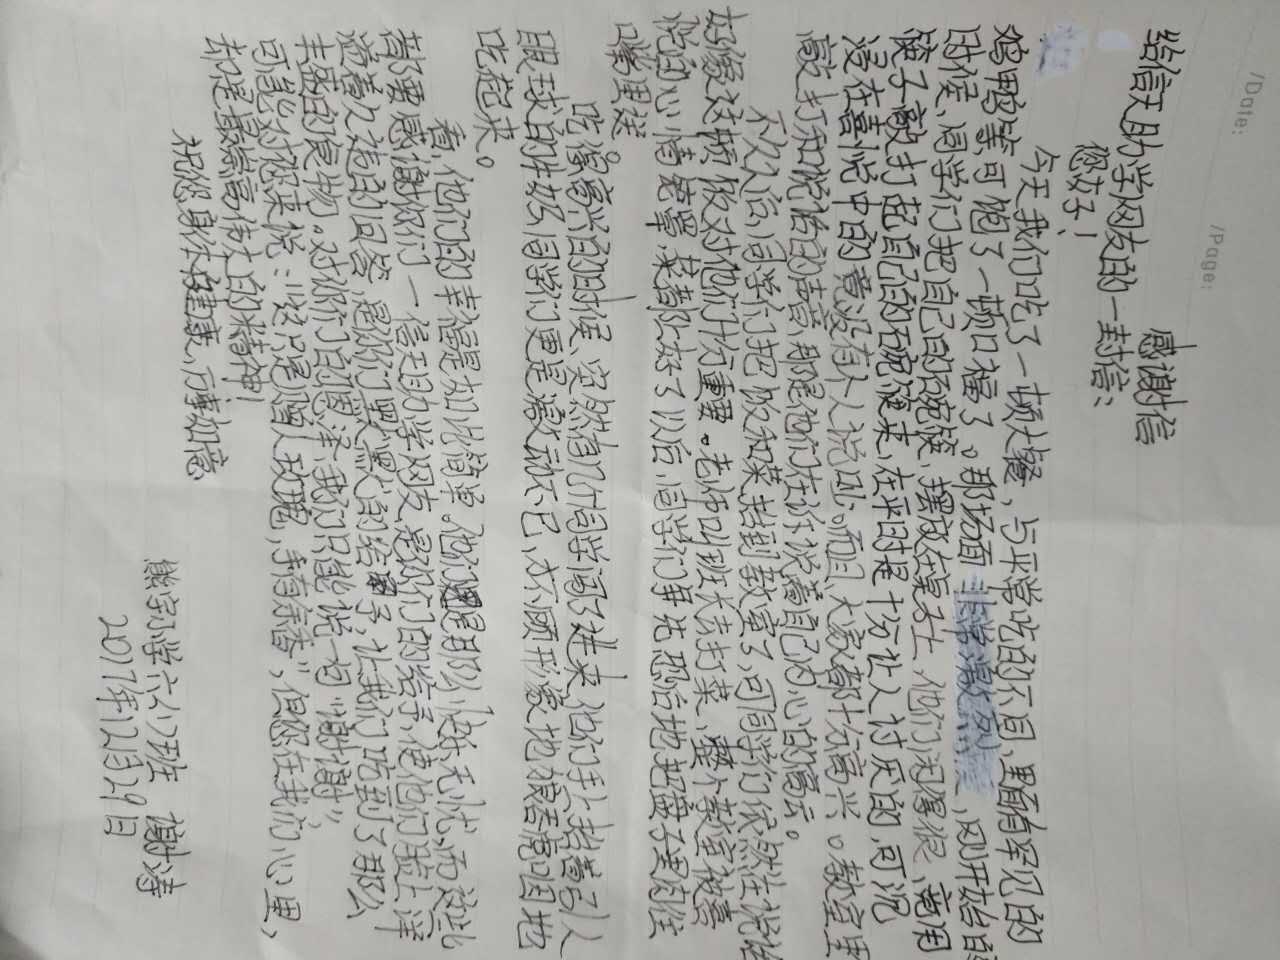 /Date:
/Page:
感谢信
给信天助学网友的一封信：
您好！
今天我们吃了一场大餐，与平常吃的不同，里面有罕见的
鸡鸭等可饱了一顿口福了。那场面非常激烈，刚开始的
时候，同学们把自己的碗筷，摆放在桌子上，他们闲得很，商用
筷子敲打起自己的碗筷来，在平时是十分让人讨厌的，可沉
浸在喜悦中的竟没有人说出。而且，大家都十分高兴。教室里
敲打和悦怡的声音那是他们在诉说着自己的心的高兴。
不久后，同学们把饭和菜抬到教室了，可同学们依然在悦怡
好像这顿饭对他们十分重要。老师叫班大去打菜，整个教室被喜
悦的心情笼罩，菜都打好了以后，同学们争先恐后地把盘子里肉往
嘴里送。
吃得高兴的时候，突然有几个同学闯了进来，他们手上抬着引人
眼球的牛奶，同学们更是激动不已，不顾形象地狼吞虎咽地
吃起来。
看，他们的幸福是如此简单。他们是那么快乐无忧，而这些
都要感谢你们——信天助学网友，是你们的给予，使他们脸上洋
溢着久违的回答，是你们默默的给予，让我们吃到了那么
丰盛的食物。对你们的恩泽，我们只能说一句“谢谢”，
可能你对您来说：“这只是赠人玫瑰，手有余香”，但您在我们心里，
却是最崇高伟大的精神！
祝您身体健康，万事如意
熊家小学六(八)班 谢涛
2017年12月29日